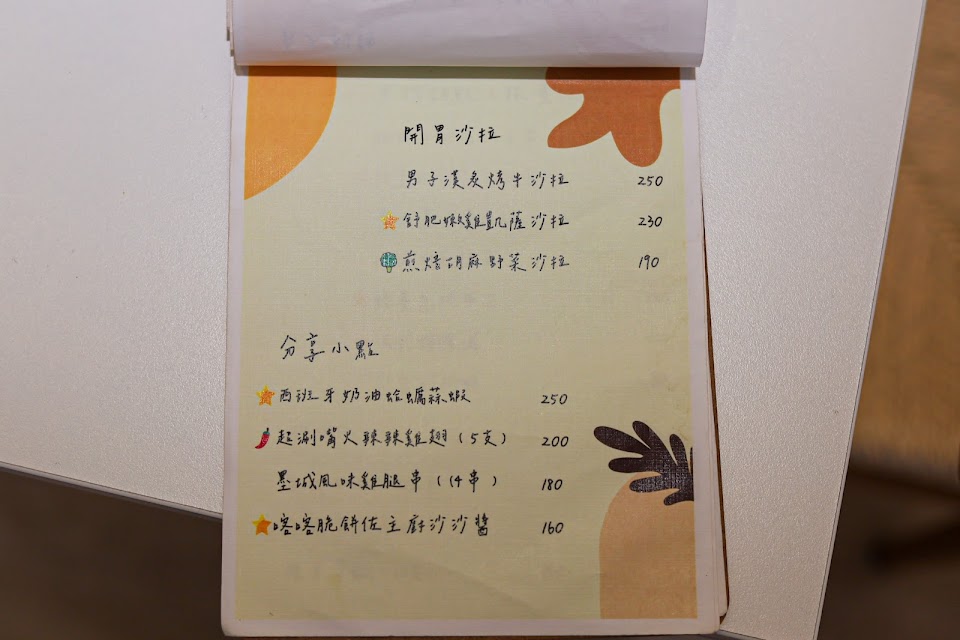 開胃沙拉
男子漢炙烤牛沙拉 250
舒肥嫩雞凱薩沙拉 230
煎烤胡麻野菜沙拉 190
分享小點
西班牙奶油蛤蠣蒜蝦 250
超涮嘴火辣辣雞翅(5支) 200
墨城風味雞腿串(4串) 180
喀喀脆餅佐主廚沙沙醬 160